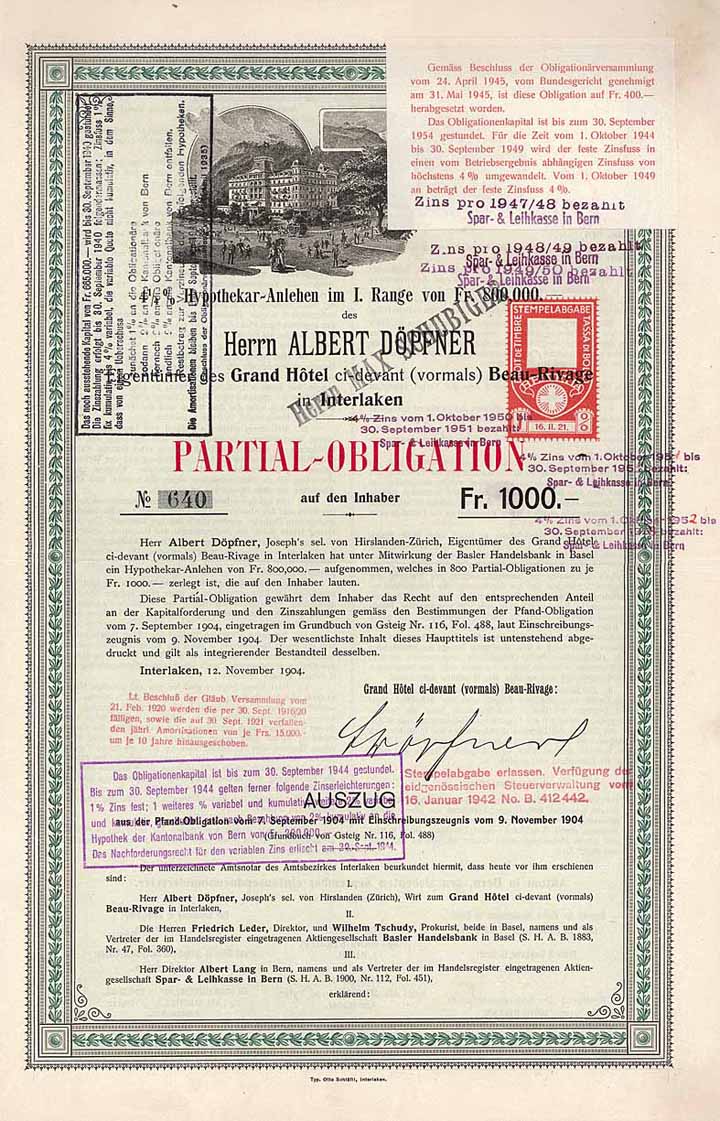 Gemäss Beschluss der Obligationärversammlung
vom 24. April 1945, vom Bundesgericht genehmigt
am 31. Mai 1945, ist diese Obligation auf Fr. 400.—
herabgesetzt worden.
Das Obligationenkapital ist bis zum 30. September
1954 gestundet. Für die Zeit vom 1. Oktober 1944
bis 30. September 1949 wird der feste Zinsfuss in
einen vom Betriebsergebnis abhängigen Zinsfuss von
höchstens 4% umgewandelt. Vom 1. Oktober 1949
an beträgt der feste Zinsfuss 4%.
Zins pro 1947/48 bezahlt
Spar- & Leihkasse in Bern
Zins pro 1948/49 bezahlt
Spar- & Leihkasse in Bern
Zins pro 1949/50 bezahlt
Spar- & Leihkasse in Bern
Das noch ausstehende Kapital von Fr. 665,000.— wird bis 30. September 1940 gestundet
Die Zinszahlung erfolgt bis 30. September 1940 folgendermassen: Zinsfuss 1%
4% variabel, die variable Quote nicht kumulativ, in dem Sinne,
an die Obligationäre
Kantonalbank von Bern
Die Amortisationen bleiben bis
Hypothekar-Anlehen im I. Range von Fr. 800,000.—
des
Herrn ALBERT DÖPFNER
Eigentümer des Grand Hôtel ci-devant (vormals) Beau-Rivage
in Interlaken
STEMPELABGABE
DROIT DE TIMBRE
TASSA DI BOLLO
16. II. 21.
4% Zins vom 1. Oktober 1950 bis
30. September 1951 bezahlt:
Spar- & Leihkasse in Bern
PARTIAL-OBLIGATION
4% Zins vom 1. Oktober 195 bis
30. September 195 bezahlt:
Spar- & Leihkasse in Bern
№ 640
auf den Inhaber
Fr. 1000.—
4% Zins vom 1. Oktober 1952 bis
30. September bezahlt:
Spar- & Leihkasse in Bern
Herr Albert Döpfner, Joseph's sel. von Hirslanden-Zürich, Eigentümer des Grand Hôtel
ci-devant (vormals) Beau-Rivage in Interlaken hat unter Mitwirkung der Basler Handelsbank in Basel
ein Hypothekar-Anlehen von Fr. 800,000.— aufgenommen, welches in 800 Partial-Obligationen zu je
Fr. 1000.— zerlegt ist, die auf den Inhaber lauten.
Diese Partial-Obligation gewährt dem Inhaber das Recht auf den entsprechenden Anteil
an der Kapitalforderung und den Zinszahlungen gemäss den Bestimmungen der Pfand-Obligation
vom 7. September 1904, eingetragen im Grundbuch von Gsteig Nr. 116, Fol. 488, laut Einschreibungs-
zeugnis vom 9. November 1904. Der wesentlichste Inhalt dieses Haupttitels ist untenstehend abge-
druckt und gilt als integrierender Bestandteil desselben.
Interlaken, 12. November 1904.
Grand Hôtel ci-devant (vormals) Beau-Rivage:
Lt. Beschluß der Gläub. Versammlung vom
21. Feb. 1920 werden die per 30. Sept. 1916/20
fälligen, sowie die auf 30. Sept. 1921 verfallen-
den jährl. Amortisationen von je Frs. 15,000.-
um je 10 Jahre hinausgeschoben.
Döpfner
Stempelabgabe erlassen. Verfügung der
eidgenössischen Steuerverwaltung vom
16. Januar 1942 No. B. 412442.
Das Obligationenkapital ist bis zum 30. September 1944 gestundet.
Bis zum 30. September 1944 gelten ferner folgende Zinserleichterungen:
1% Zins fest; 1 weiteres % variabel und kumulativ
Hypothek der Kantonalbank von Bern von
Das Nachforderungsrecht für den variablen Zins erlischt am 30. Sept. 1944.
AUSZUG
aus der Pfand-Obligation vom 7. September 1904 mit Einschreibungszeugnis vom 9. November 1904
(Grundbuch von Gsteig Nr. 116, Fol. 488)
Der unterzeichnete Amtsnotar des Amtsbezirkes Interlaken beurkundet hiermit, dass heute vor ihm erschienen
sind:
I.
Herr Albert Döpfner, Joseph's sel. von Hirslanden (Zürich), Wirt zum Grand Hôtel ci-devant (vormals)
Beau-Rivage in Interlaken,
II.
Die Herren Friedrich Leder, Direktor, und Wilhelm Tschudy, Prokurist, beide in Basel, namens und als
Vertreter der im Handelsregister eingetragenen Aktiengesellschaft Basler Handelsbank in Basel (S. H. A. B. 1883,
Nr. 47, Fol. 360),
III.
Herr Direktor Albert Lang in Bern, namens und als Vertreter der im Handelsregister eingetragenen Aktien-
gesellschaft Spar- & Leihkasse in Bern (S. H. A. B. 1900, Nr. 112, Fol. 451),
erklärend:
Typ. Otto Schläfli, Interlaken.